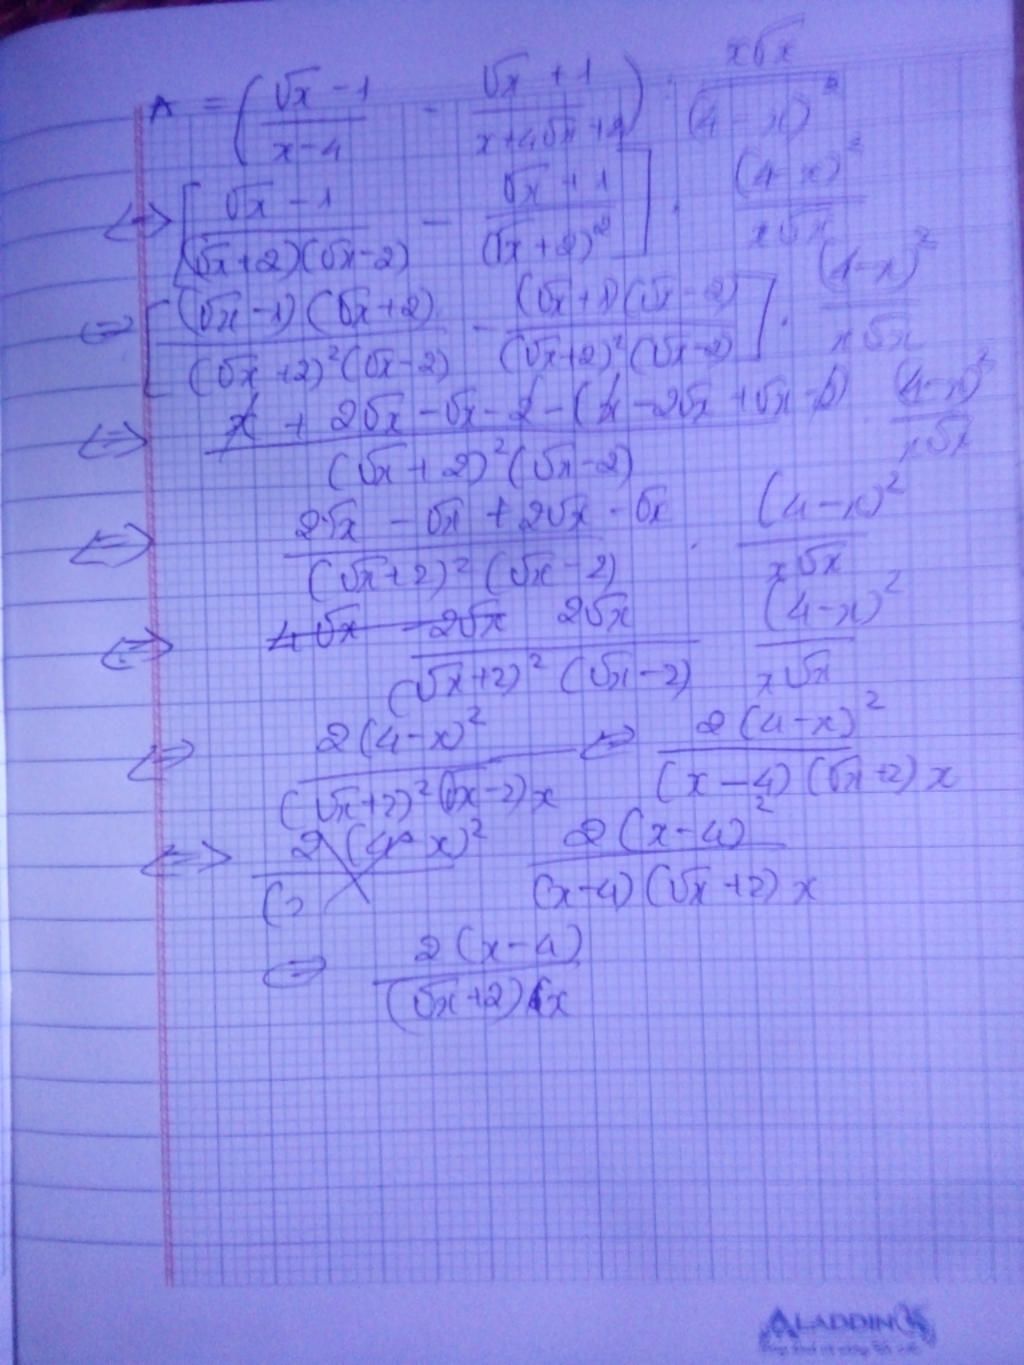 A = ( (√x - 1)/(x - 4) - (√x + 1)/(x + 4√x + 2) ) : x√x/(4 - x)²
⇔ [ (√x - 1)/((√x + 2)(√x - 2)) - (√x + 1)/(√x + 2)² ] . (4 - x)²/(x√x)
⇔ [ (√x - 1)(√x + 2)/((√x + 2)²(√x - 2)) - (√x + 1)(√x - 2)/((√x + 2)²(√x - 2)) ] . (4 - x)²/(x√x)
⇔ (x + 2√x - √x - 2 - (x - 2√x + √x - 2))/((√x + 2)²(√x - 2)) . (4 - x)²/(x√x)
⇔ (2√x - √x + 2√x - √x)/((√x + 2)²(√x - 2)) . (4 - x)²/(x√x)
⇔ 4√x - 2√x 2√x/((√x + 2)²(√x - 2)) (4 - x)²/(x√x)
⇔ 2(4 - x)²/((√x + 2)²(√x - 2)x) ⇔ 2(4 - x)²/((x - 4)(√x + 2)x)
⇔ 2(4 - x)²/( 2(x - 4)²/((x - 4)(√x + 2)x)
⇔ 2(x - 4)/((√x + 2)x)
ALADDIN